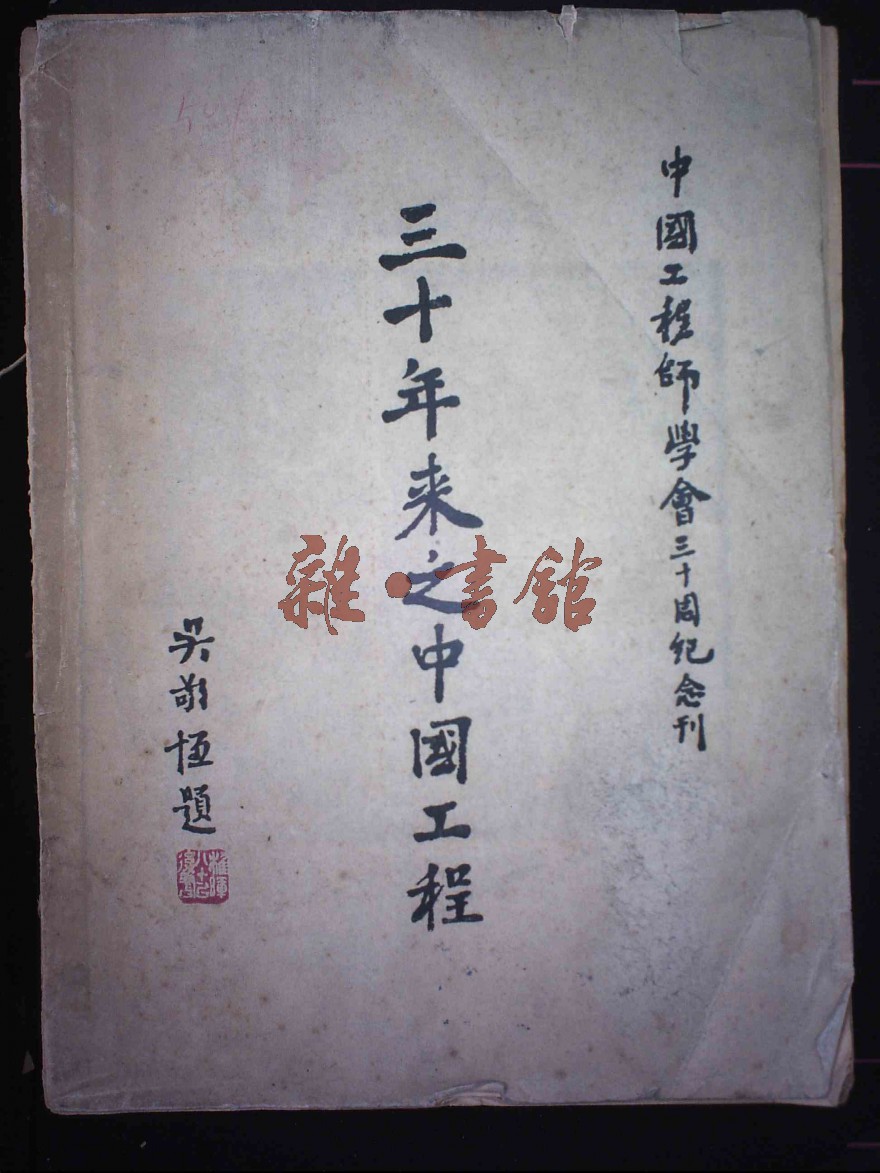 中國工程師學會三十周紀念刊
三十年来之中國工程
吳敬恆題
雜·書館